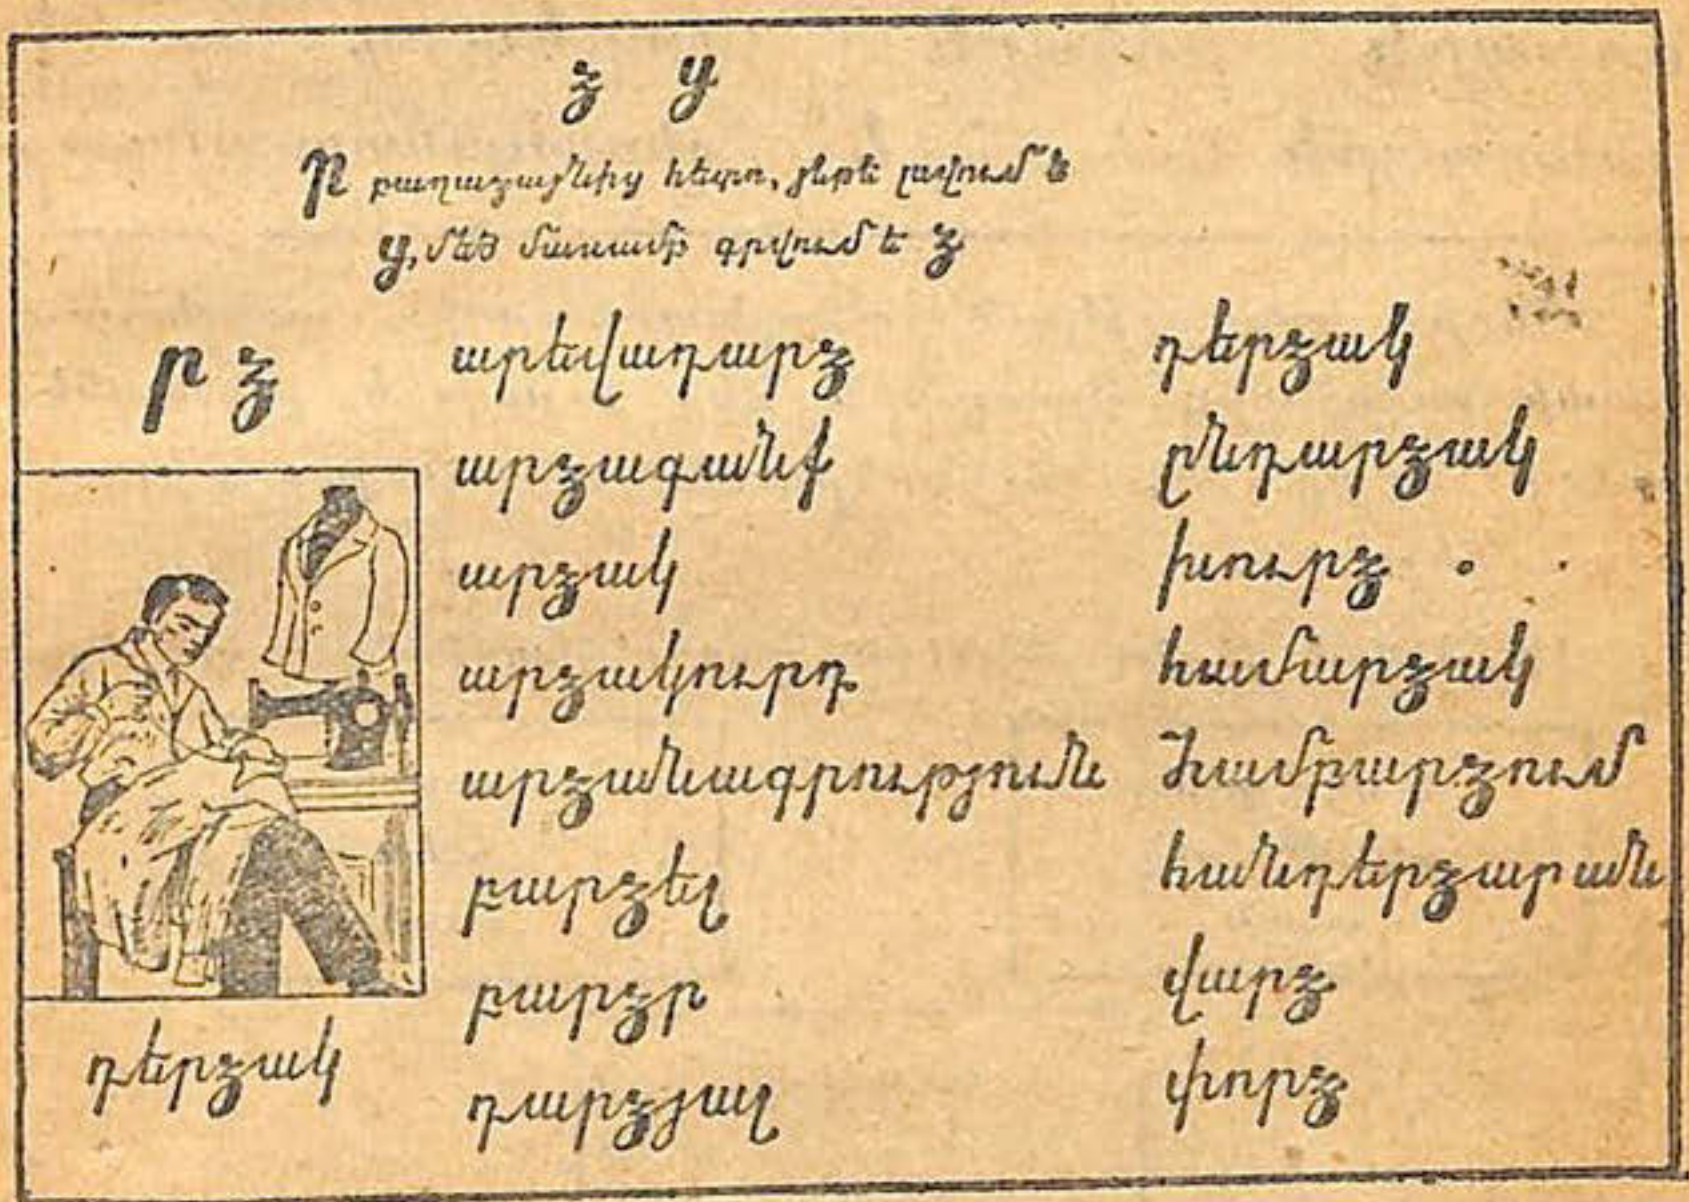 ձ ց
Ր բաղաձայնից հետո, յեթե լսվում ե
ց, մեծ մասամբ գրվում ե ձ
րձ
արեվադարձ
արձագանք
արձակ
արձակուրդ
արձանագրություն
բարձել
բարձր
դարձյալ
դերձակ
ընդարձակ
խուրձ
համարձակ
Համբարձում
հանդերձարան
վարձ
փորձ
դերձակ